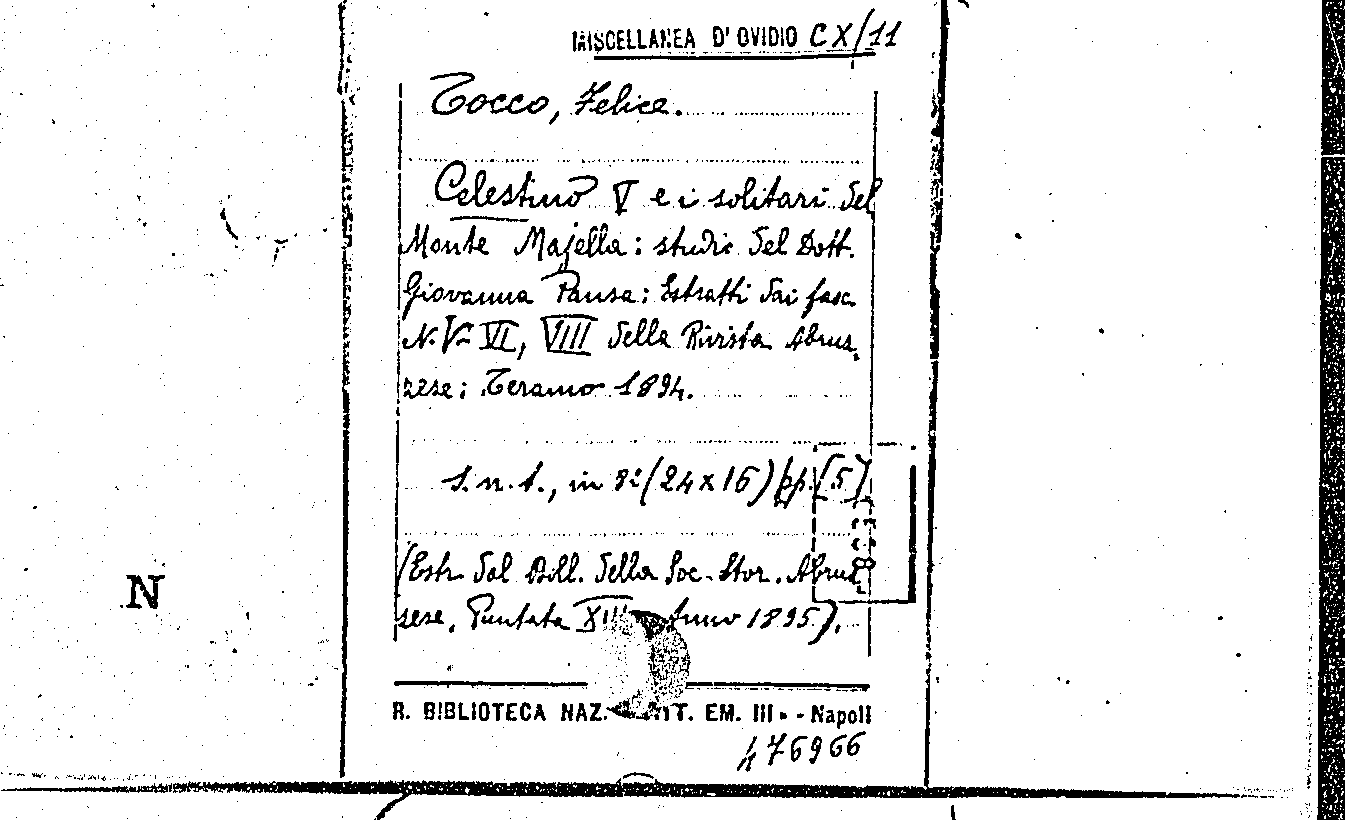 MISCELLANEA D'OVIDIO CX/11
Tocco, Felice.
Celestino V e i solitari del
Monte Majella: studio del Dott.
Giovanna Pansa: Estratti dai fasc.
N. V- VI, VIII della Rivista Abruz.
zese: Teramo 1894.
s.n.t., in 8º (24x16) pp. [5]
(Estr. dal Boll. della Soc. Stor. Abruz
zese, Puntata XIII Anno 1895).
N
R. BIBLIOTECA NAZ. VITT. EM. III - Napoli
476966